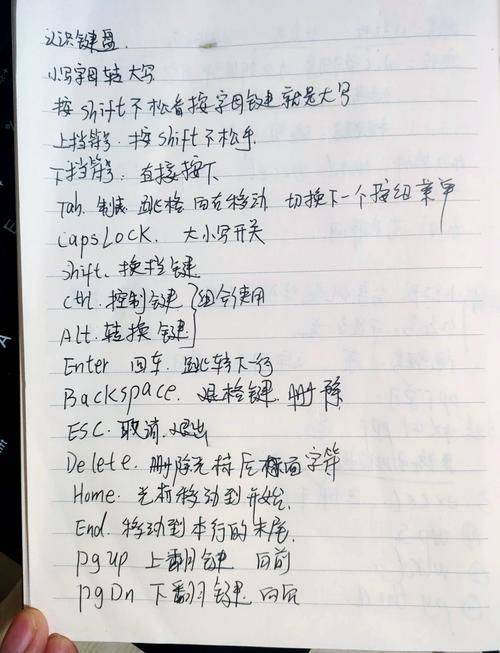 认识键盘.
小写字母转大写
按shift不松音按字母键就是大写
上挡符号.按shift不松手.
下挡符号:直接按下
Tab. 制表 跳格 向右移动 切换下一个按纽菜单
CapsLOCK. 大小写开关
shift. 换挡键
Ctrl. 控制键 }组合使用
Alt. 转换键
Enter 回车. 跳转下一行
Backspace. 退格键. 删除
ESC. 取消.退出
Delete. 删除光标后面字符
Home. 光标移动到开始.
End. 移动到本行的末尾.
pgup 上翻键 向前
pgDn 下翻键 向后